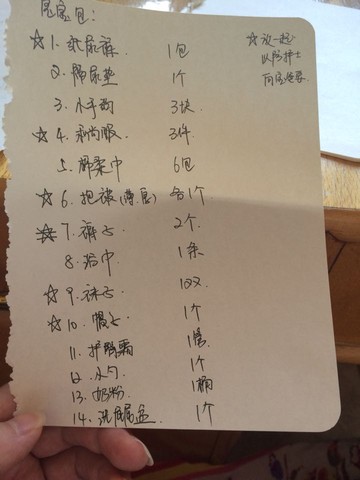 宝宝包:
☆1. 纸尿裤 1包
2. 隔尿垫 1个
3. 小手帕 3块
☆4. 和尚服 3件
5. 棉柔巾 6包
☆6. 抱被(薄、厚) 各1个
☆7. 裤子 2个
8. 浴巾 1条
☆9. 袜子 10双
☆10. 帽子 1个
11. 护臀霜 1管
12. 水勺 1个
13. 奶粉 1桶
14. 洗屁屁盆 1个
☆放一起
以防护士